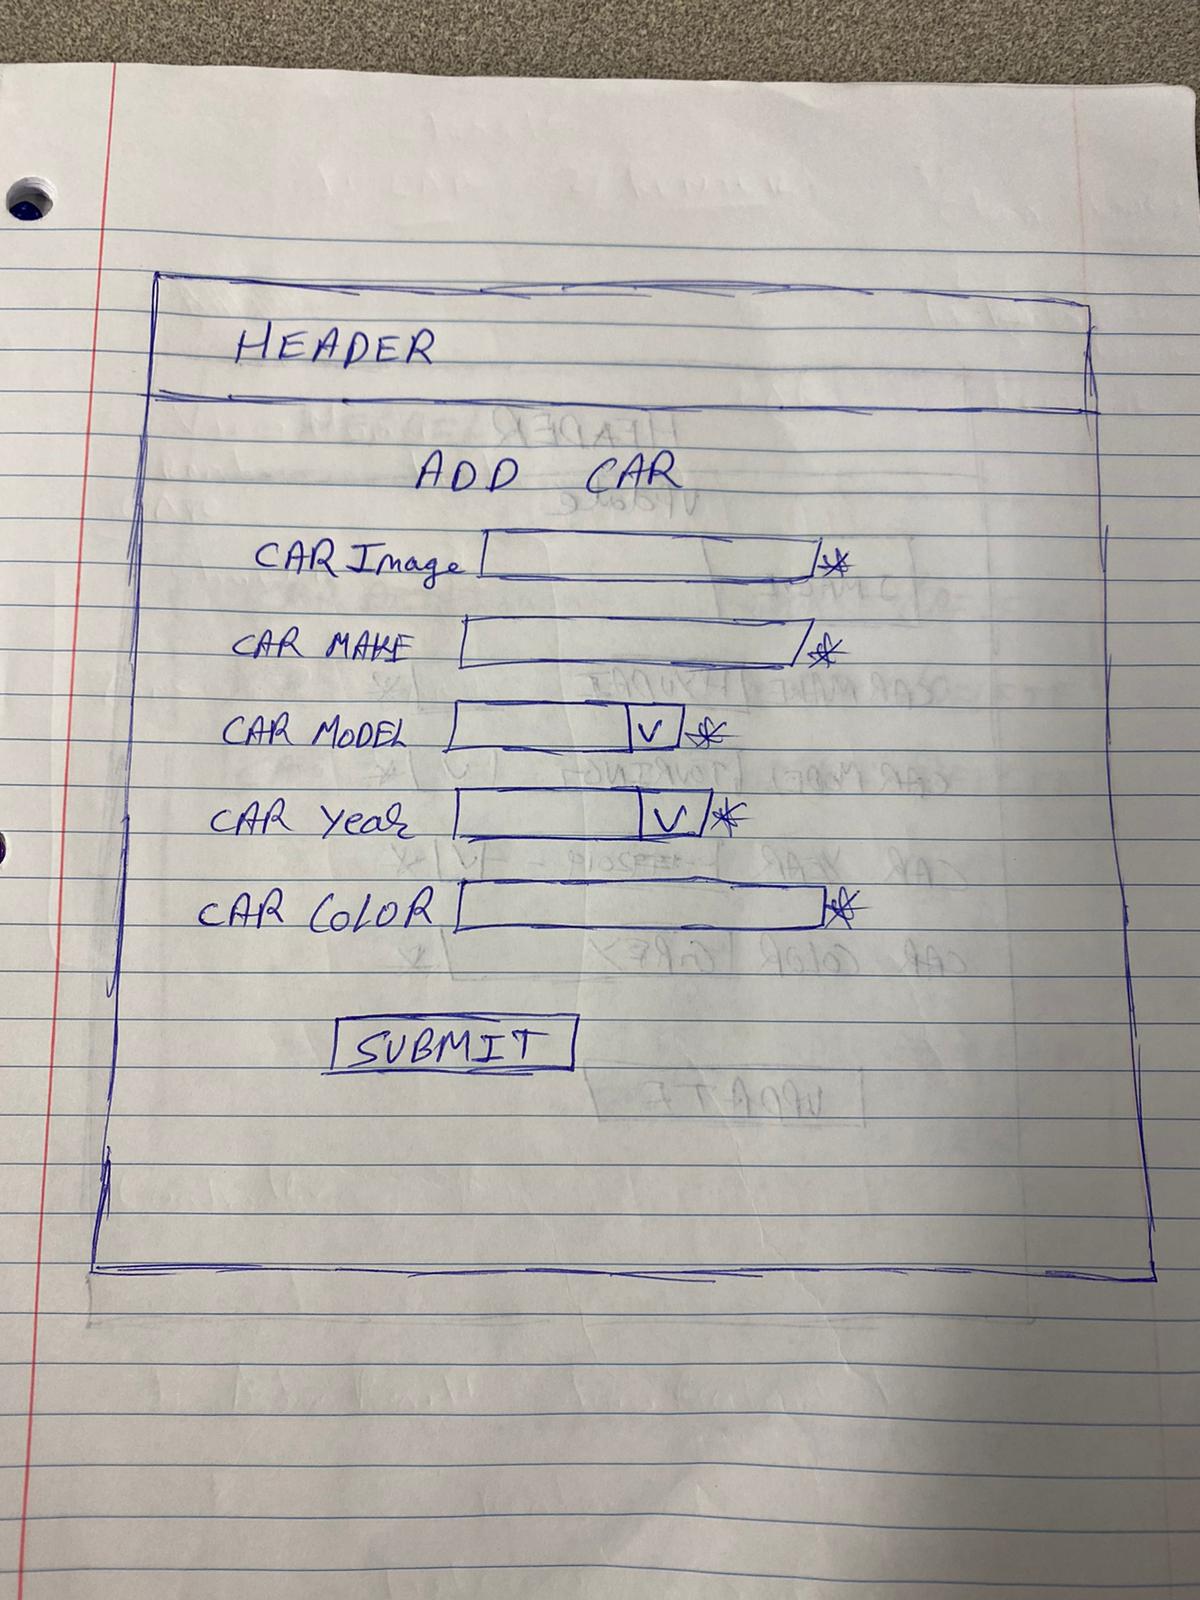 HEADER
ADD CAR
CAR Image *
CAR MAKE *
CAR MODEL V *
CAR Year V *
CAR COLOR *
SUBMIT